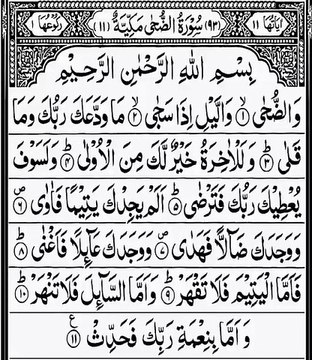 اٰیَاتُهَا ۱۱ (۹۳) سُوْرَةُ الضُّحٰی مَكِّیَّةٌ (۱۱) رُكُوْعُهَا ۱
بِسْمِ اللهِ الرَّحْمٰنِ الرَّحِیْمِ
وَالضُّحٰی ۙ﴿۱﴾ وَالَّیْلِ اِذَا سَجٰی ۙ﴿۲﴾ مَا وَدَّعَكَ رَبُّكَ وَمَا
قَلٰی ؕ﴿۳﴾ وَلَلْاٰخِرَةُ خَیْرٌ لَّكَ مِنَ الْاُوْلٰی ؕ﴿۴﴾ وَلَسَوْفَ
یُعْطِیْكَ رَبُّكَ فَتَرْضٰی ؕ﴿۵﴾ اَلَمْ یَجِدْكَ یَتِیْمًا فَاٰوٰی ۪﴿۶﴾
وَوَجَدَكَ ضَآلًّا فَهَدٰی ۪﴿۷﴾ وَوَجَدَكَ عَآئِلًا فَاَغْنٰی ؕ﴿۸﴾
فَاَمَّا الْیَتِیْمَ فَلَا تَقْهَرْ ؕ﴿۹﴾ وَاَمَّا السَّآئِلَ فَلَا تَنْهَرْ ؕ﴿۱۰﴾
وَاَمَّا بِنِعْمَةِ رَبِّكَ فَحَدِّثْ ﴿۱۱﴾ ع